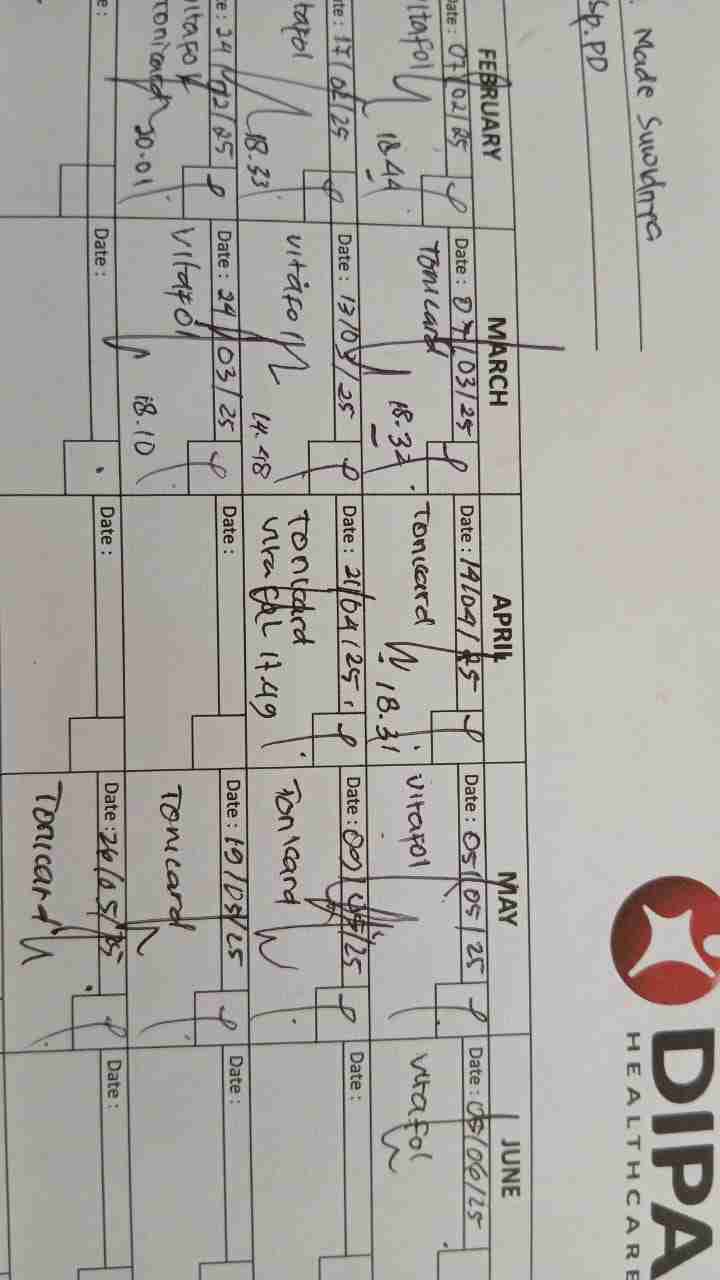 . Made Suwidnya
Sp.PD
DIPA
HEALTHCARE
FEBRUARY
Date : 07/02/25
vitafol
18.44
Date : 17/02/25
vitafol
18.33
Date : 24/02/25
vitafol
Tonicard
20.01
MARCH
Date : 07/03/25
Tonicard
18.32
Date : 13/03/25
vitafol
14.48
Date : 24/03/25
vitafol
18.10
Date :
APRIL
Date : 14/04/25
Tonicard
18.31
Date : 21/04/25
Tonicard
vitafol 17.49
Date :
Date :
MAY
Date : 05/05/25
vitafol
Date : 09/05/25
Tonicard
Date : 19/05/25
Tonicard
Date : 26/05/25
Tonicard
JUNE
Date : 05/06/25
vitafol
Date :
Date :
Date :